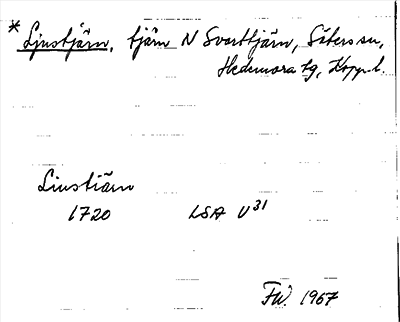 * Ljustjärn, tjärn N Svarttjärn, Säters sn,
Hedemora tg, Kopp. l.
Liustiärn
1720 LSA U31
FW. 1967